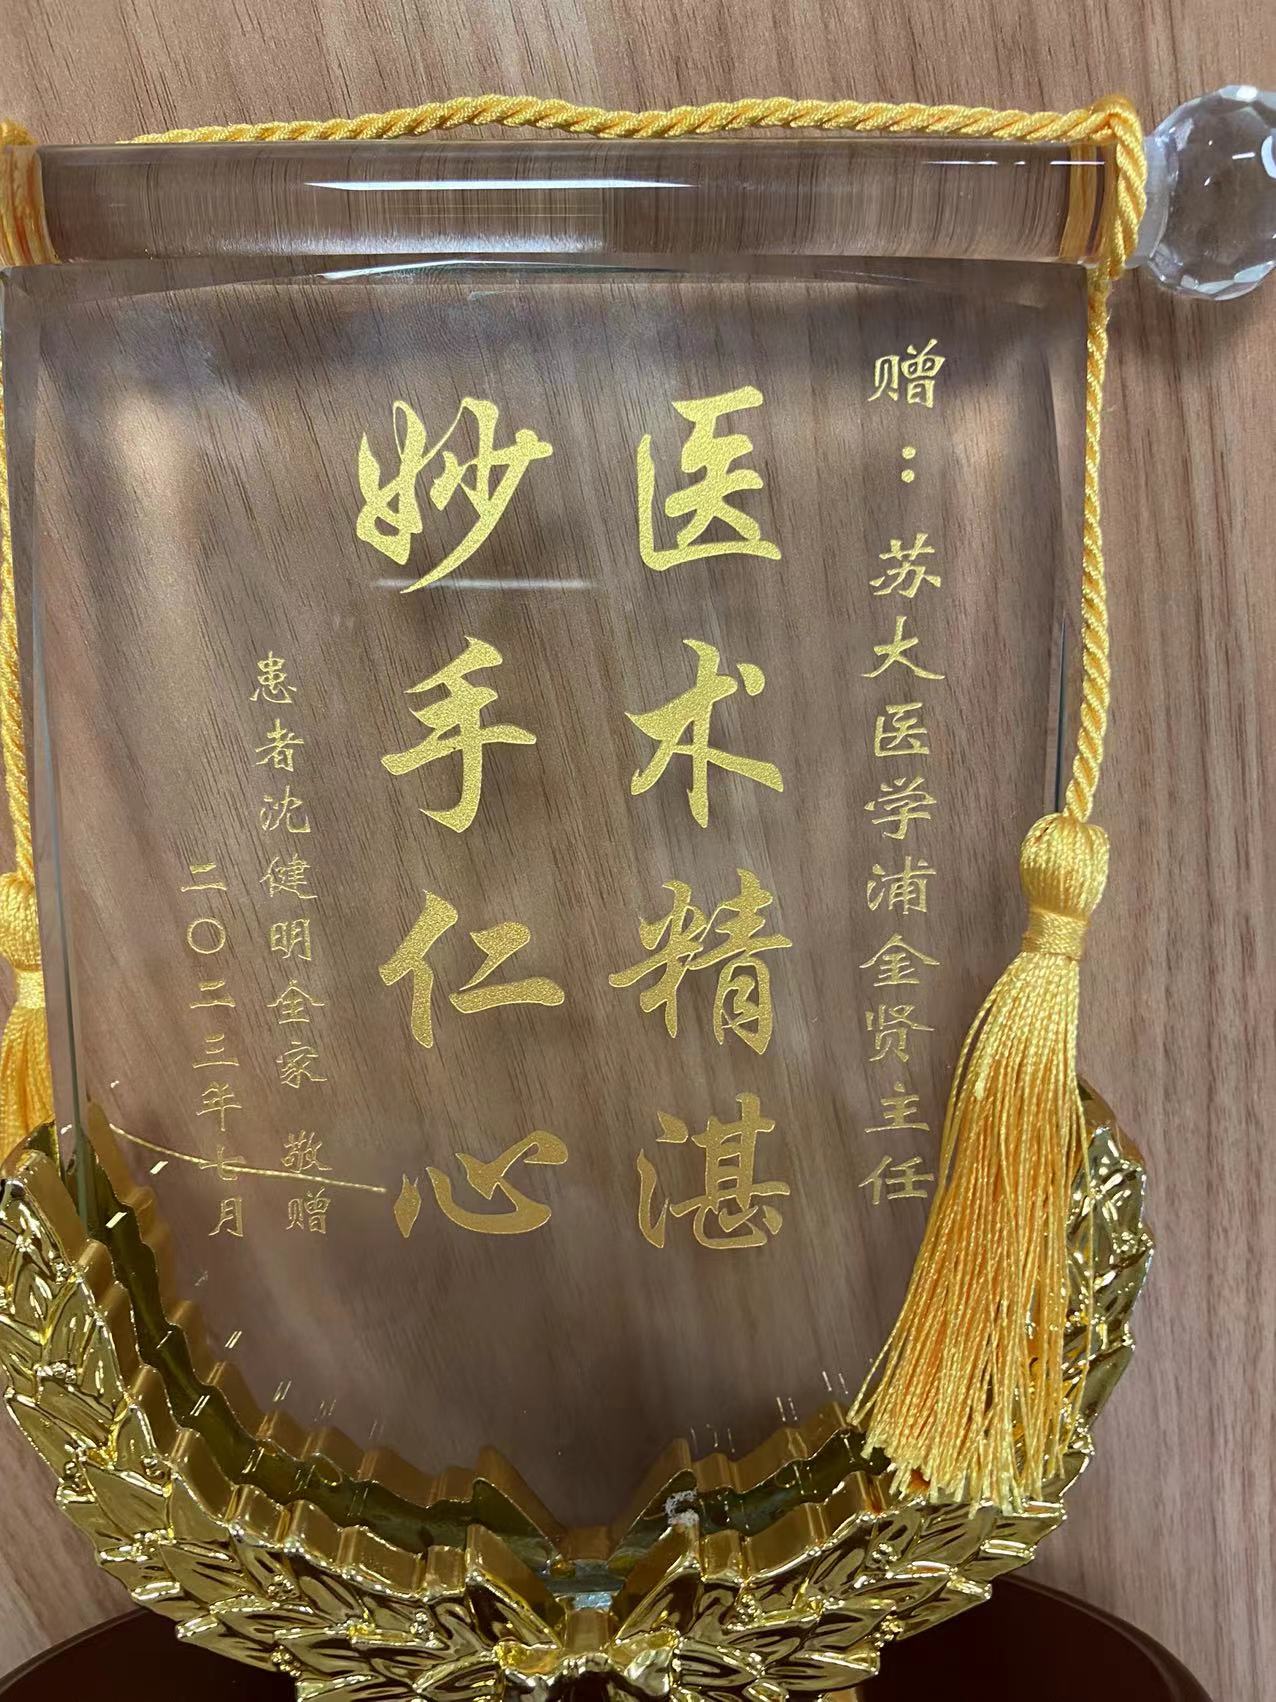 赠：苏大医学浦金贤主任
医术精湛
妙手仁心
患者沈健明全家 敬赠
二〇二三年七月